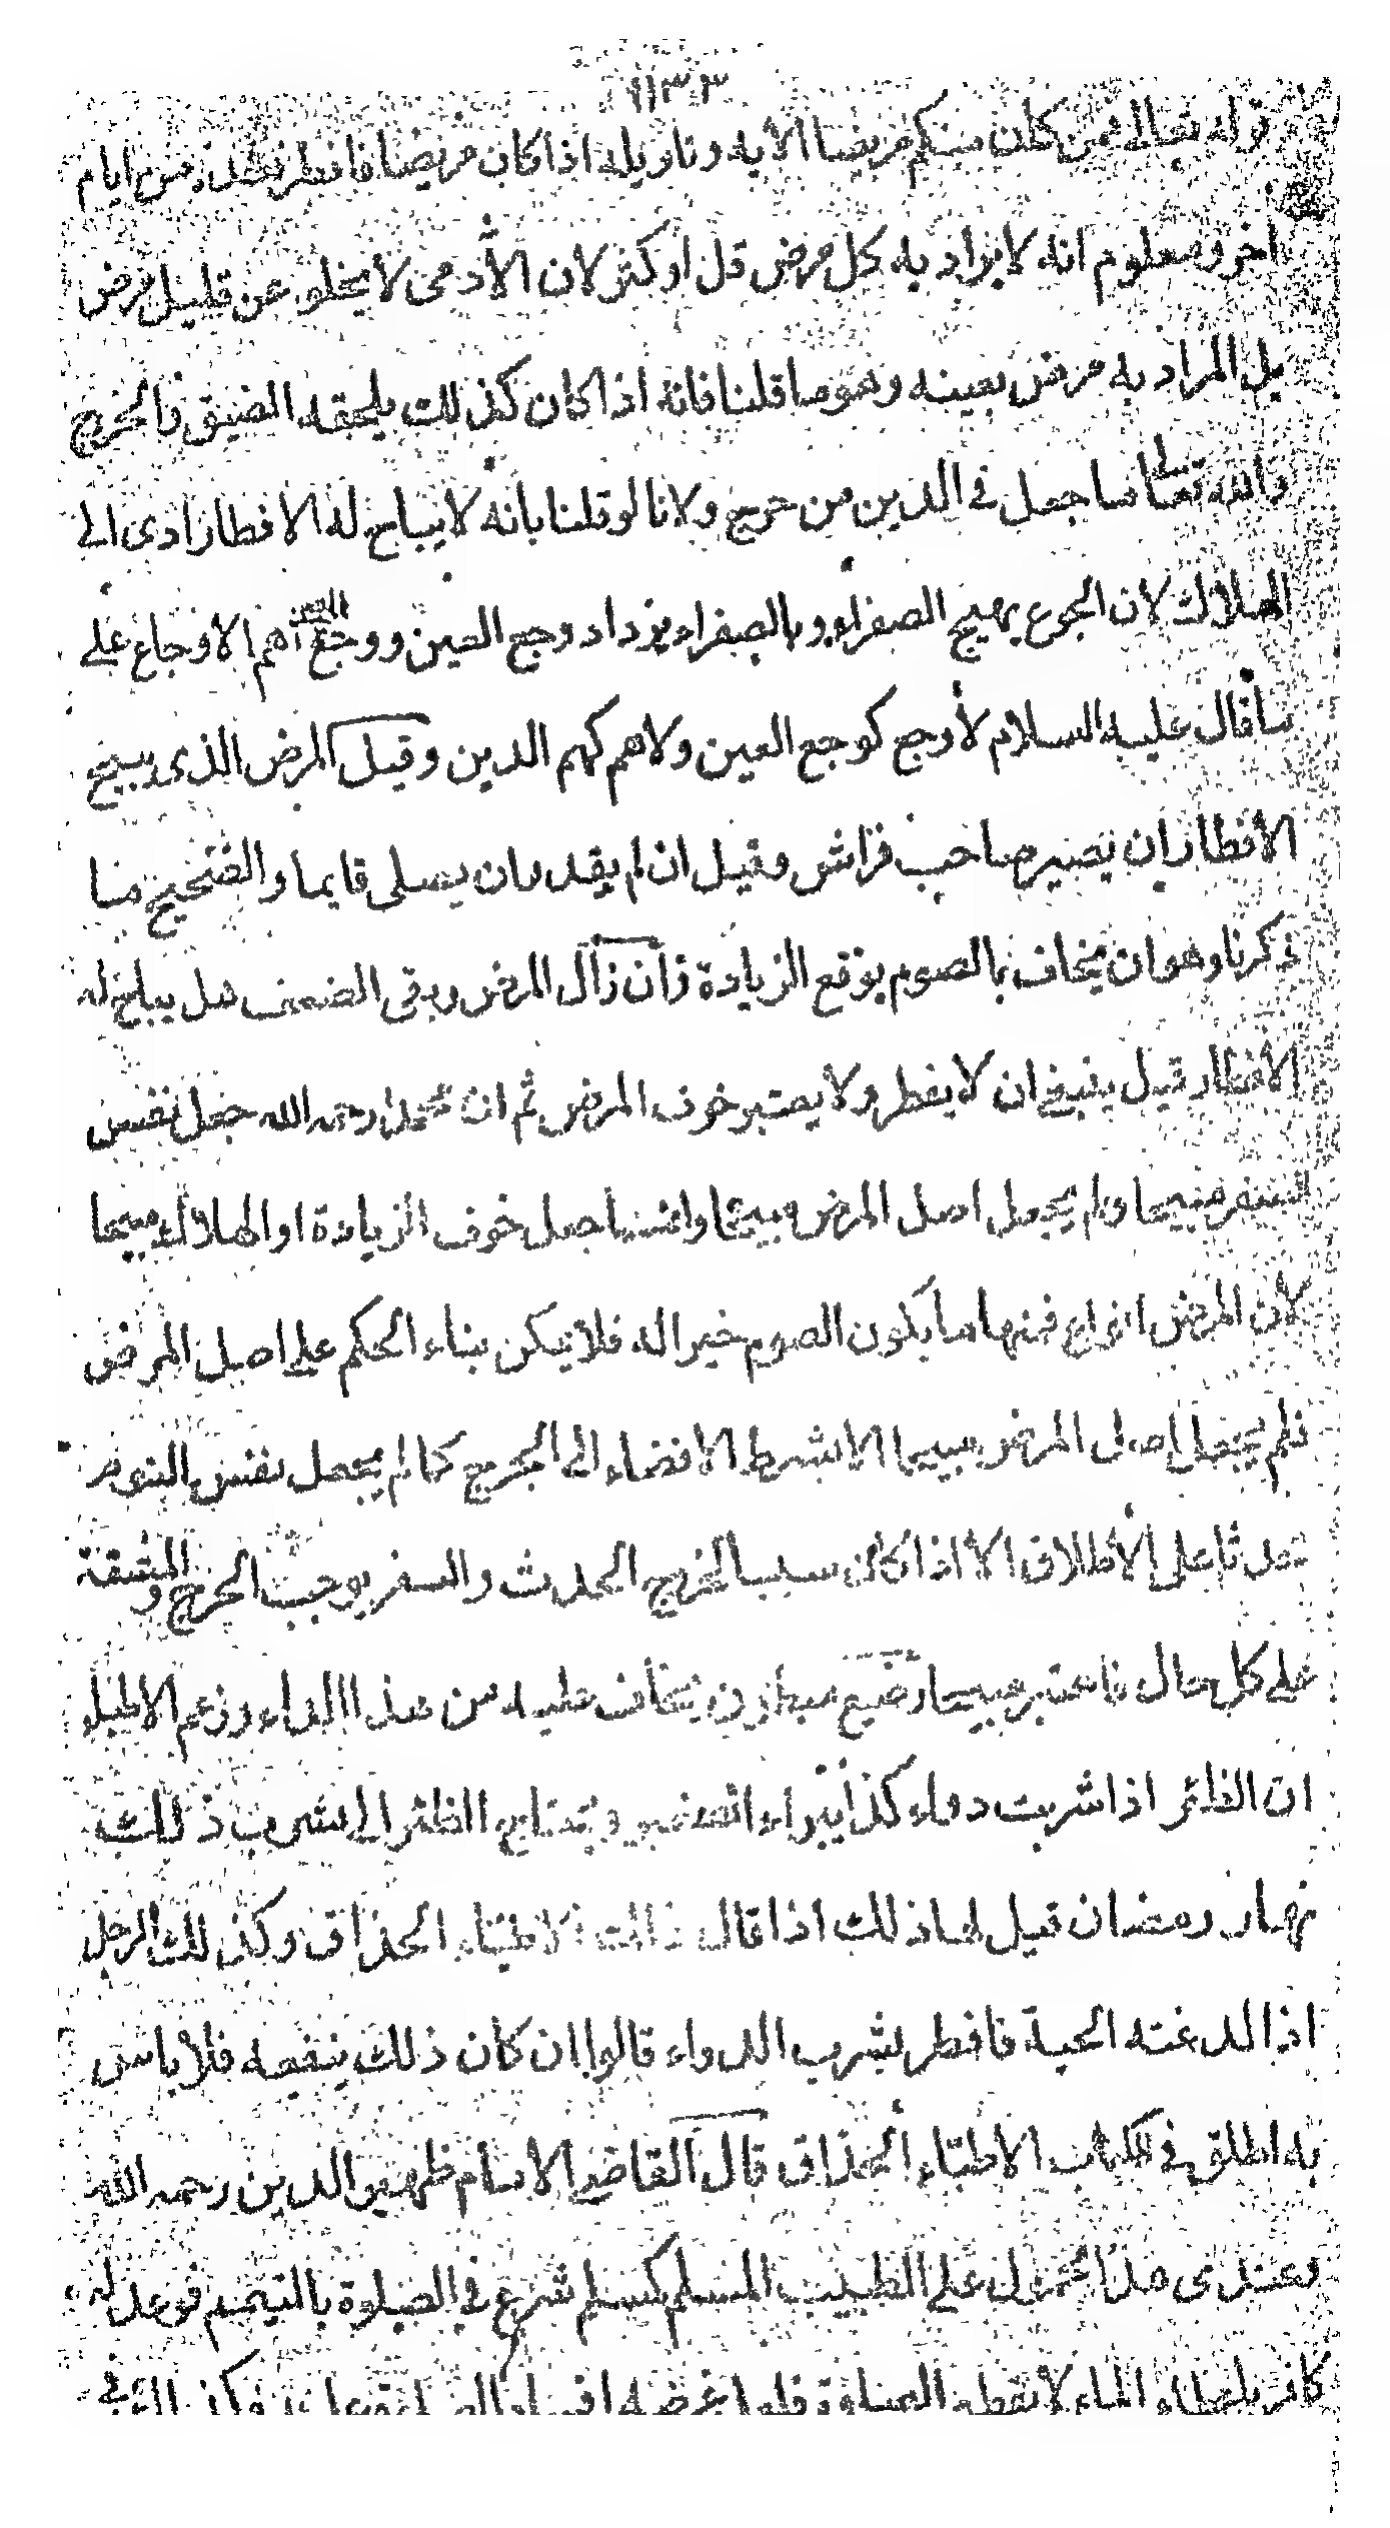 ١١٣٣
قوله تعالى فمن كان منكم مريضا الأية وتاويله اذا كان مريضا فافطر فعدة من ايام
اخر ومعلوم انه لا يراد به كل مرض قل او كثر لان الأدمى لا يخلو عن قليل مرض
بل المراد به مرض بعينه وهو ما قلنا فانه اذا كان كذلك يلحقه الضيق فالحرج
والله تعالى ما جعل في الدين من حرج ولانا لو قلنا بانه لا يباح له الافطار ادى الى
الهلاك لان الجوع يهيج الصفراء وبالصفراء يزداد وجع العين ووجع العين اهم الاوجاع على
ما قال عليه السلام لأوجع كوجع العين ولا هم كهم الدين وقيل المرض الذى يبيح
الأفطار ان يصير صاحب فراش وقيل ان لم يقدر ان يصلى قايما والصحيح ما
ذكرنا وهو ان يخاف بالصوم بوقع الزيادة فان زال المرض وبقى الضعف هل يباح له
الأفطار قيل ينبغي ان لا يفطر ولا يعتبر خوف المرض ثم ان محمدا رحمه الله جعل نفس
السفر مبيحا ولم يجعل اصل المرض مبيحا وانما جعل خوف الزيادة او الهلاك مبيحا
لان المرض انواع فمنها ما يكون الصوم خيرا له فلا يمكن بناء الحكم على اصل المرض
فلم يجعل اصل المرض مبيحا الا بشرط الافضاء الى الحرج كما لم يجعل نفس النوم
حدثا على الأطلاق الا اذا كان سببا لخروج الحدث والسفر يوجب الحرج والمشقة
على كل حال فاعتبر مبيحا رضيع مبطون يخاف عليه من هذا الداء وزعم الاطباء
ان الظئر اذا شربت دواء كذا يبراء الصغير وتحتاج الظئر الى شرب ذلك
نهار رمضان قيل لها ذلك اذا قال ذلك الاطباء الحذاق وكذلك الرجل
اذا لدغته الحية فافطر بشرب الدواء قالوا ان كان ذلك ينفعه فلا باس
به اطلق في الكتاب الاطباء الحذاق قال القاضى الامام ظهير الدين رحمه الله
وعندى هذا محمول على الطبيب المسلم كمسلم شرع في الصلوة بالتيمم فوعد له
كافر باعطاء الماء لا يقطع الصلوة فلعل غرضه افساد الصلوة عليه فكذلك في